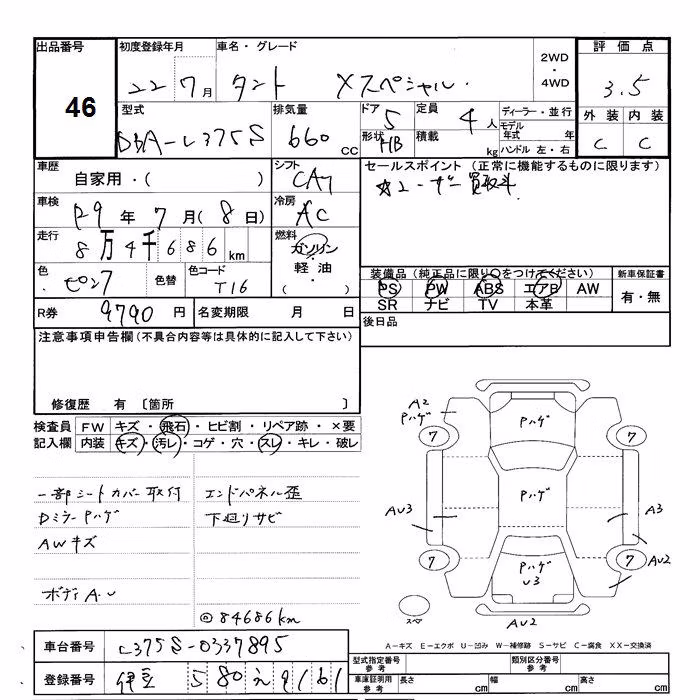 出品番号 初度登録年月 車名・グレード 2WD 評価点
46 22 7月 タント Xスペシャル ・ 3.5
4WD
型式 排気量 ドア 5 定員 4人 ディーラー・並行 外装 内装
DBA-L375S 660cc 形状 HB 積載 kg モデル年式 年 C C
ハンドル 左・右
車歴 自家用・( ) シフト CA7 セールスポイント(正常に機能するものに限ります)
☆ユーザー買取车
車検 H29年 7月(8日) 冷房 AC
走行 8万4千686km 燃料 ガソリン
軽油・
( )
色 ピンク 色替 色コード T16
装備品(純正品に限り○をつけてください) 新車保証書
PS PW ABS エアB AW 有・無
SR ナビ TV 本革
R券 9790円 名変期限 月 日 後日品
注意事項申告欄(不具合内容等は具体的に記入して下さい)
修復歴 有 〔箇所 〕
検査員 FW キズ・飛石・ヒビ割・リペア跡・×要
記入欄 内装 キズ・汚レ・コゲ・穴・スレ・キレ・破レ
一部シートカバー取付 エンドパネル歪
Dミラー Pハゲ 下廻りサビ
AWキズ
ボディ A・U
◎84686km
A2
Pハゲ
Pハゲ
7 7
Pハゲ
AU3 A3
7 Pハゲ 7 AU2
U3
スペア AU2
A-キズ E-エクボ U-凹み W-補修跡 S-サビ C-腐食 XX-交換済
車台番号 L375S-0337895
型式指定番号 参考 類別区分番号 参考
登録番号 伊豆 580 え 9161
車庫証明用 参考 長さ cm 幅 cm 高さ cm